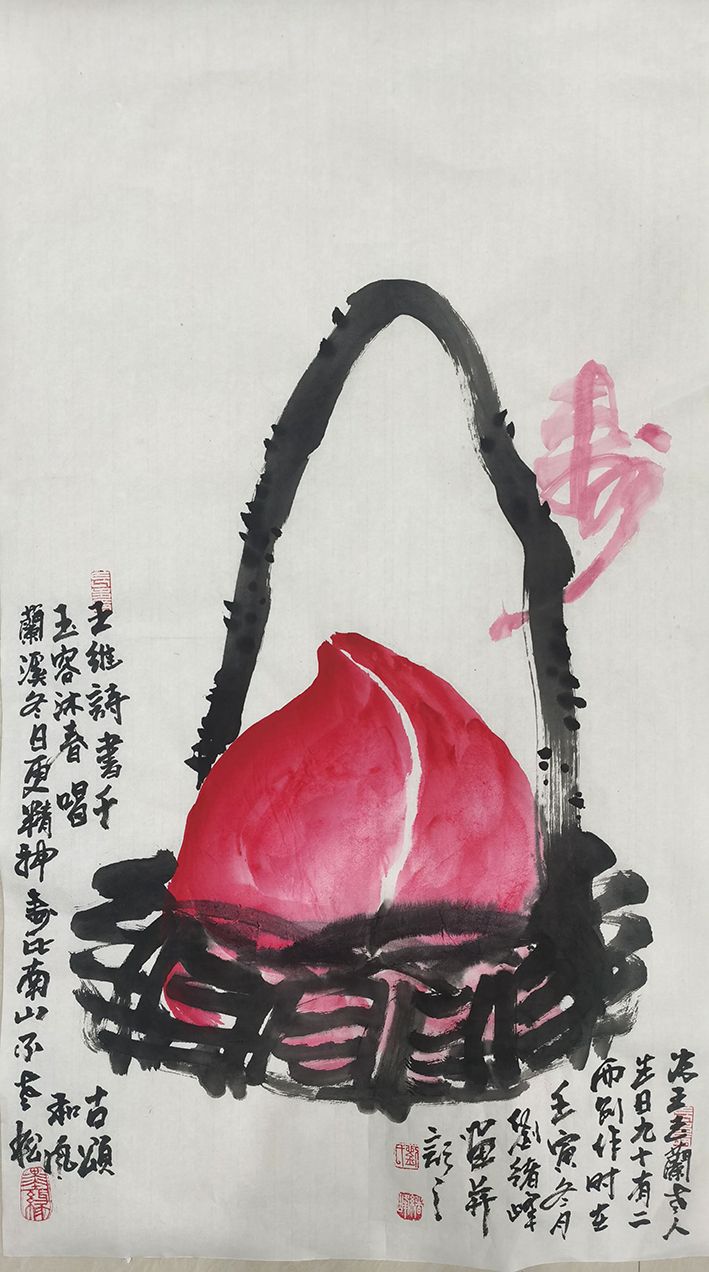 壽
王玉蘭老人
生日九十有二
而創作时在
壬寅冬月
劉緒峰
畫并
題之
王維詩書千古頌
玉容沐春唱和風
蘭溪冬日更精神壽比南山不老松
墨緣